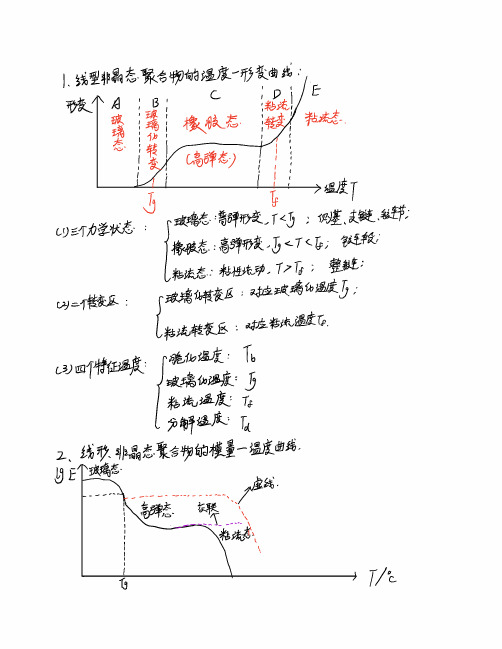 1、线型非晶态聚合物的温度—形变曲线:
形变 A B C D E
玻璃态 玻璃化转变 橡胶态 粘流转变 粘流态
(高弹态)
温度T
Tg Tf
(1)三个力学状态: 玻璃态:普弹形变,T<Tg; 侧基、支链、链节;
橡胶态:高弹形变,Tg<T<Tf; 链段;
粘流态:粘性流动,T>Tf; 整链;
(2)二个转变区: 玻璃化转变区:对应玻璃化温度Tg;
粘流转变区:对应粘流温度Tf.
(3)四个特征温度: 脆化温度:Tb
玻璃化温度:Tg
粘流温度:Tf
分解温度:Td
2、线形非晶态聚合物的模量—温度曲线.
lg E 玻璃态.
高弹态 交联 虚线.
粘流态
Tg T/℃